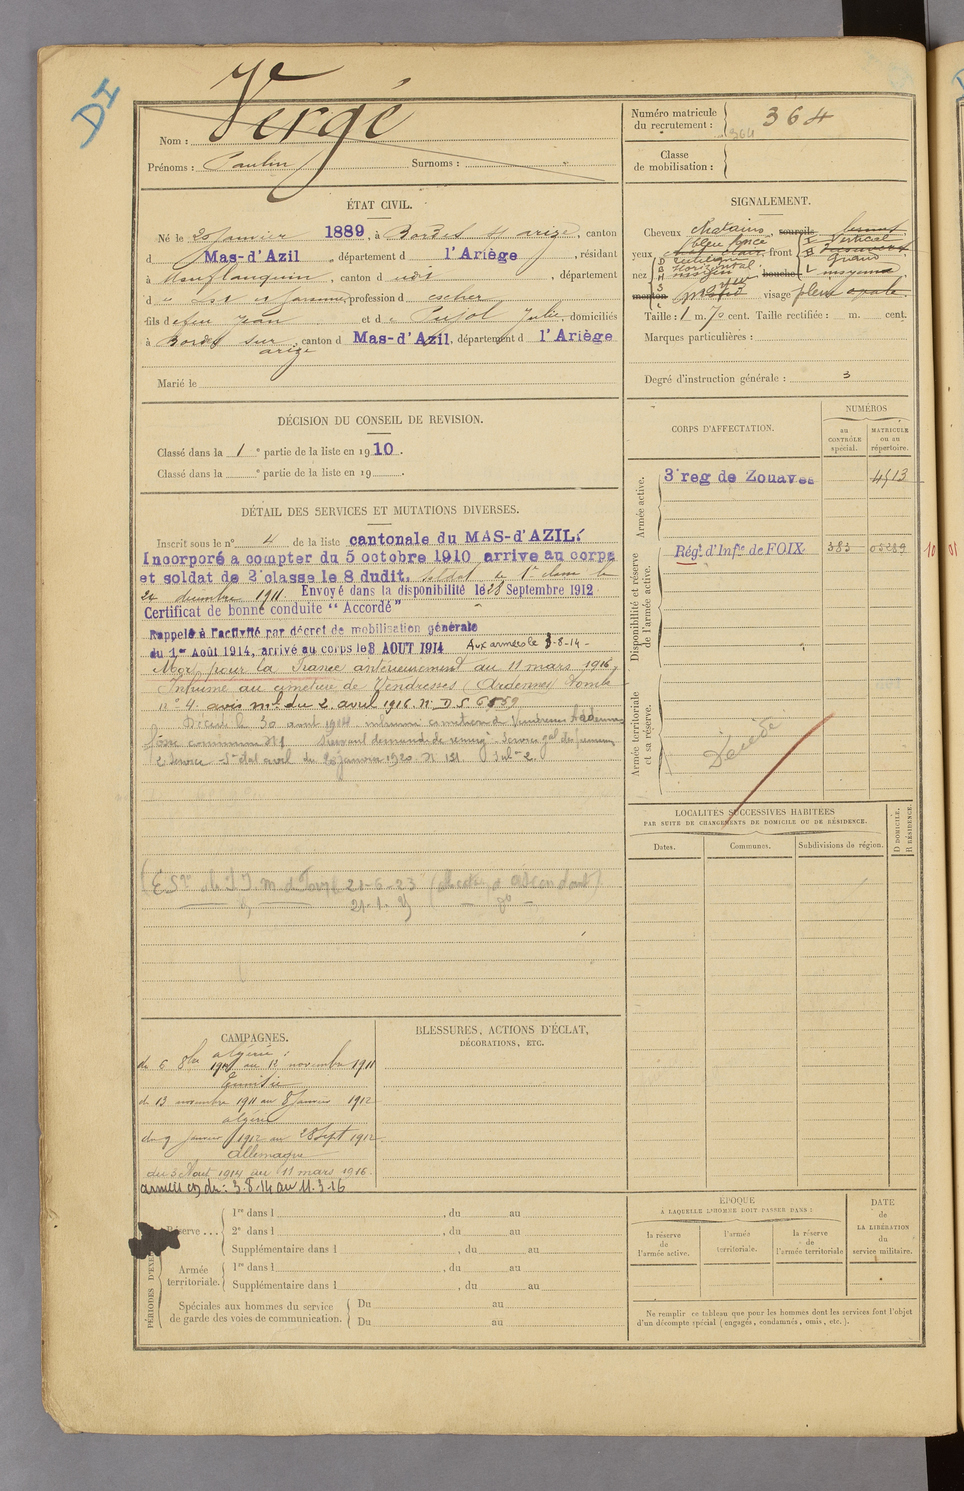 DI
Nom : Vergé
Prénoms : Paulin Surnoms : "
Numéro matricule
du recrutement : 364
364
Classe
de mobilisation :
ÉTAT CIVIL.
Né le 20 Janvier 1889, à Bordes s/ arize, canton
d Mas-d'Azil, département d l'Ariège, résidant
à Monflanquin, canton d udi, département
d Lot et Garonne, profession d
fils de feu Jean et de Pujol Julie, domiciliés
à Bordes sur arize, canton d Mas-d'Azil, département d l'Ariège
Marié le
SIGNALEMENT.
Cheveux chatains, sourcils
yeux bleu foncé front vertical
nez rectiligne Horizontal moyen, bouche moyenne
menton visage plein ovale.
Taille : 1 m. 70 cent. Taille rectifiée : m. cent.
Marques particulières :
Degré d'instruction générale : 3
DÉCISION DU CONSEIL DE REVISION.
Classé dans la 1e partie de la liste en 1910.
Classé dans la e partie de la liste en 19 .
DÉTAIL DES SERVICES ET MUTATIONS DIVERSES.
Inscrit sous le n° 4 de la liste cantonale du MAS-d'AZIL.
Incorporé à compter du 5 octobre 1910 arrivé au corps
et soldat de 2e classe le 8 dudit. soldat de 1e classe le
24 décembre 1911. Envoyé dans la disponibilité le 28 Septembre 1912
Certificat de bonne conduite "Accordé"
Rappelé à l'activité par décret de mobilisation générale
du 1er Août 1914, arrivé au corps le 3 AOUT 1914 Aux armées le 3-8-14 -
Mort pour la France antérieurement au 11 mars 1916,
Inhumé au cimetière de Vendresses (Ardennes) Tombe
n° 4 avis ml du 2 avril 1916. N° D.S. 6859
Décédé le 30 aout 1914 inhumé cimetière de Vendresse Ardennes
fosse commune N°1 Suivant demande de renseigt Service gal des pensions
2 Service Et dat avril du 20 janvier 1920 N° 131
21-6-23
CORPS D'AFFECTATION.
NUMÉROS
au CONTRÔLE spécial.
MATRICULE ou au répertoire.
Armée active.
3e reg de Zouaves 4513
Disponibilité et réserve
de l'armée active.
Régt d'Infie de FOIX 383 05289
Armée territoriale
et sa réserve.
Décédé
LOCALITÉS SUCCESSIVES HABITÉES
PAR SUITE DE CHANGEMENTS DE DOMICILE OU DE RÉSIDENCE.
Dates. Communes. Subdivisions de région. D DOMICILE. R RÉSIDENCE.
CAMPAGNES.
algérie :
du 6 8bre 1910 au 12 novembre 1911
Tunisie
du 13 novembre 1911 au 8 Janvier 1912
algérie
du 9 janvier 1912 au 28 Sept 1912
Allemagne
du 3 Aout 1914 au 11 mars 1916.
armées du : 3.8.14 au 11.3.16
BLESSURES, ACTIONS D'ÉCLAT,
DÉCORATIONS, ETC.
PÉRIODES D'EXE
Réserve ...
1re dans l , du au
2e dans l , du au
Supplémentaire dans l , du au
Armée
territoriale.
1re dans l , du au
Supplémentaire dans l , du au
Spéciales aux hommes du service
de garde des voies de communication.
Du au
Du au
ÉPOQUE
À LAQUELLE L'HOMME DOIT PASSER DANS :
la réserve
de
l'armée active.
l'armée
territoriale.
la réserve
de
l'armée territoriale
DATE
de
LA LIBÉRATION
du
service militaire.
Ne remplir ce tableau que pour les hommes dont les services font l'objet
d'un décompte spécial (engagés, condamnés, omis, etc.).